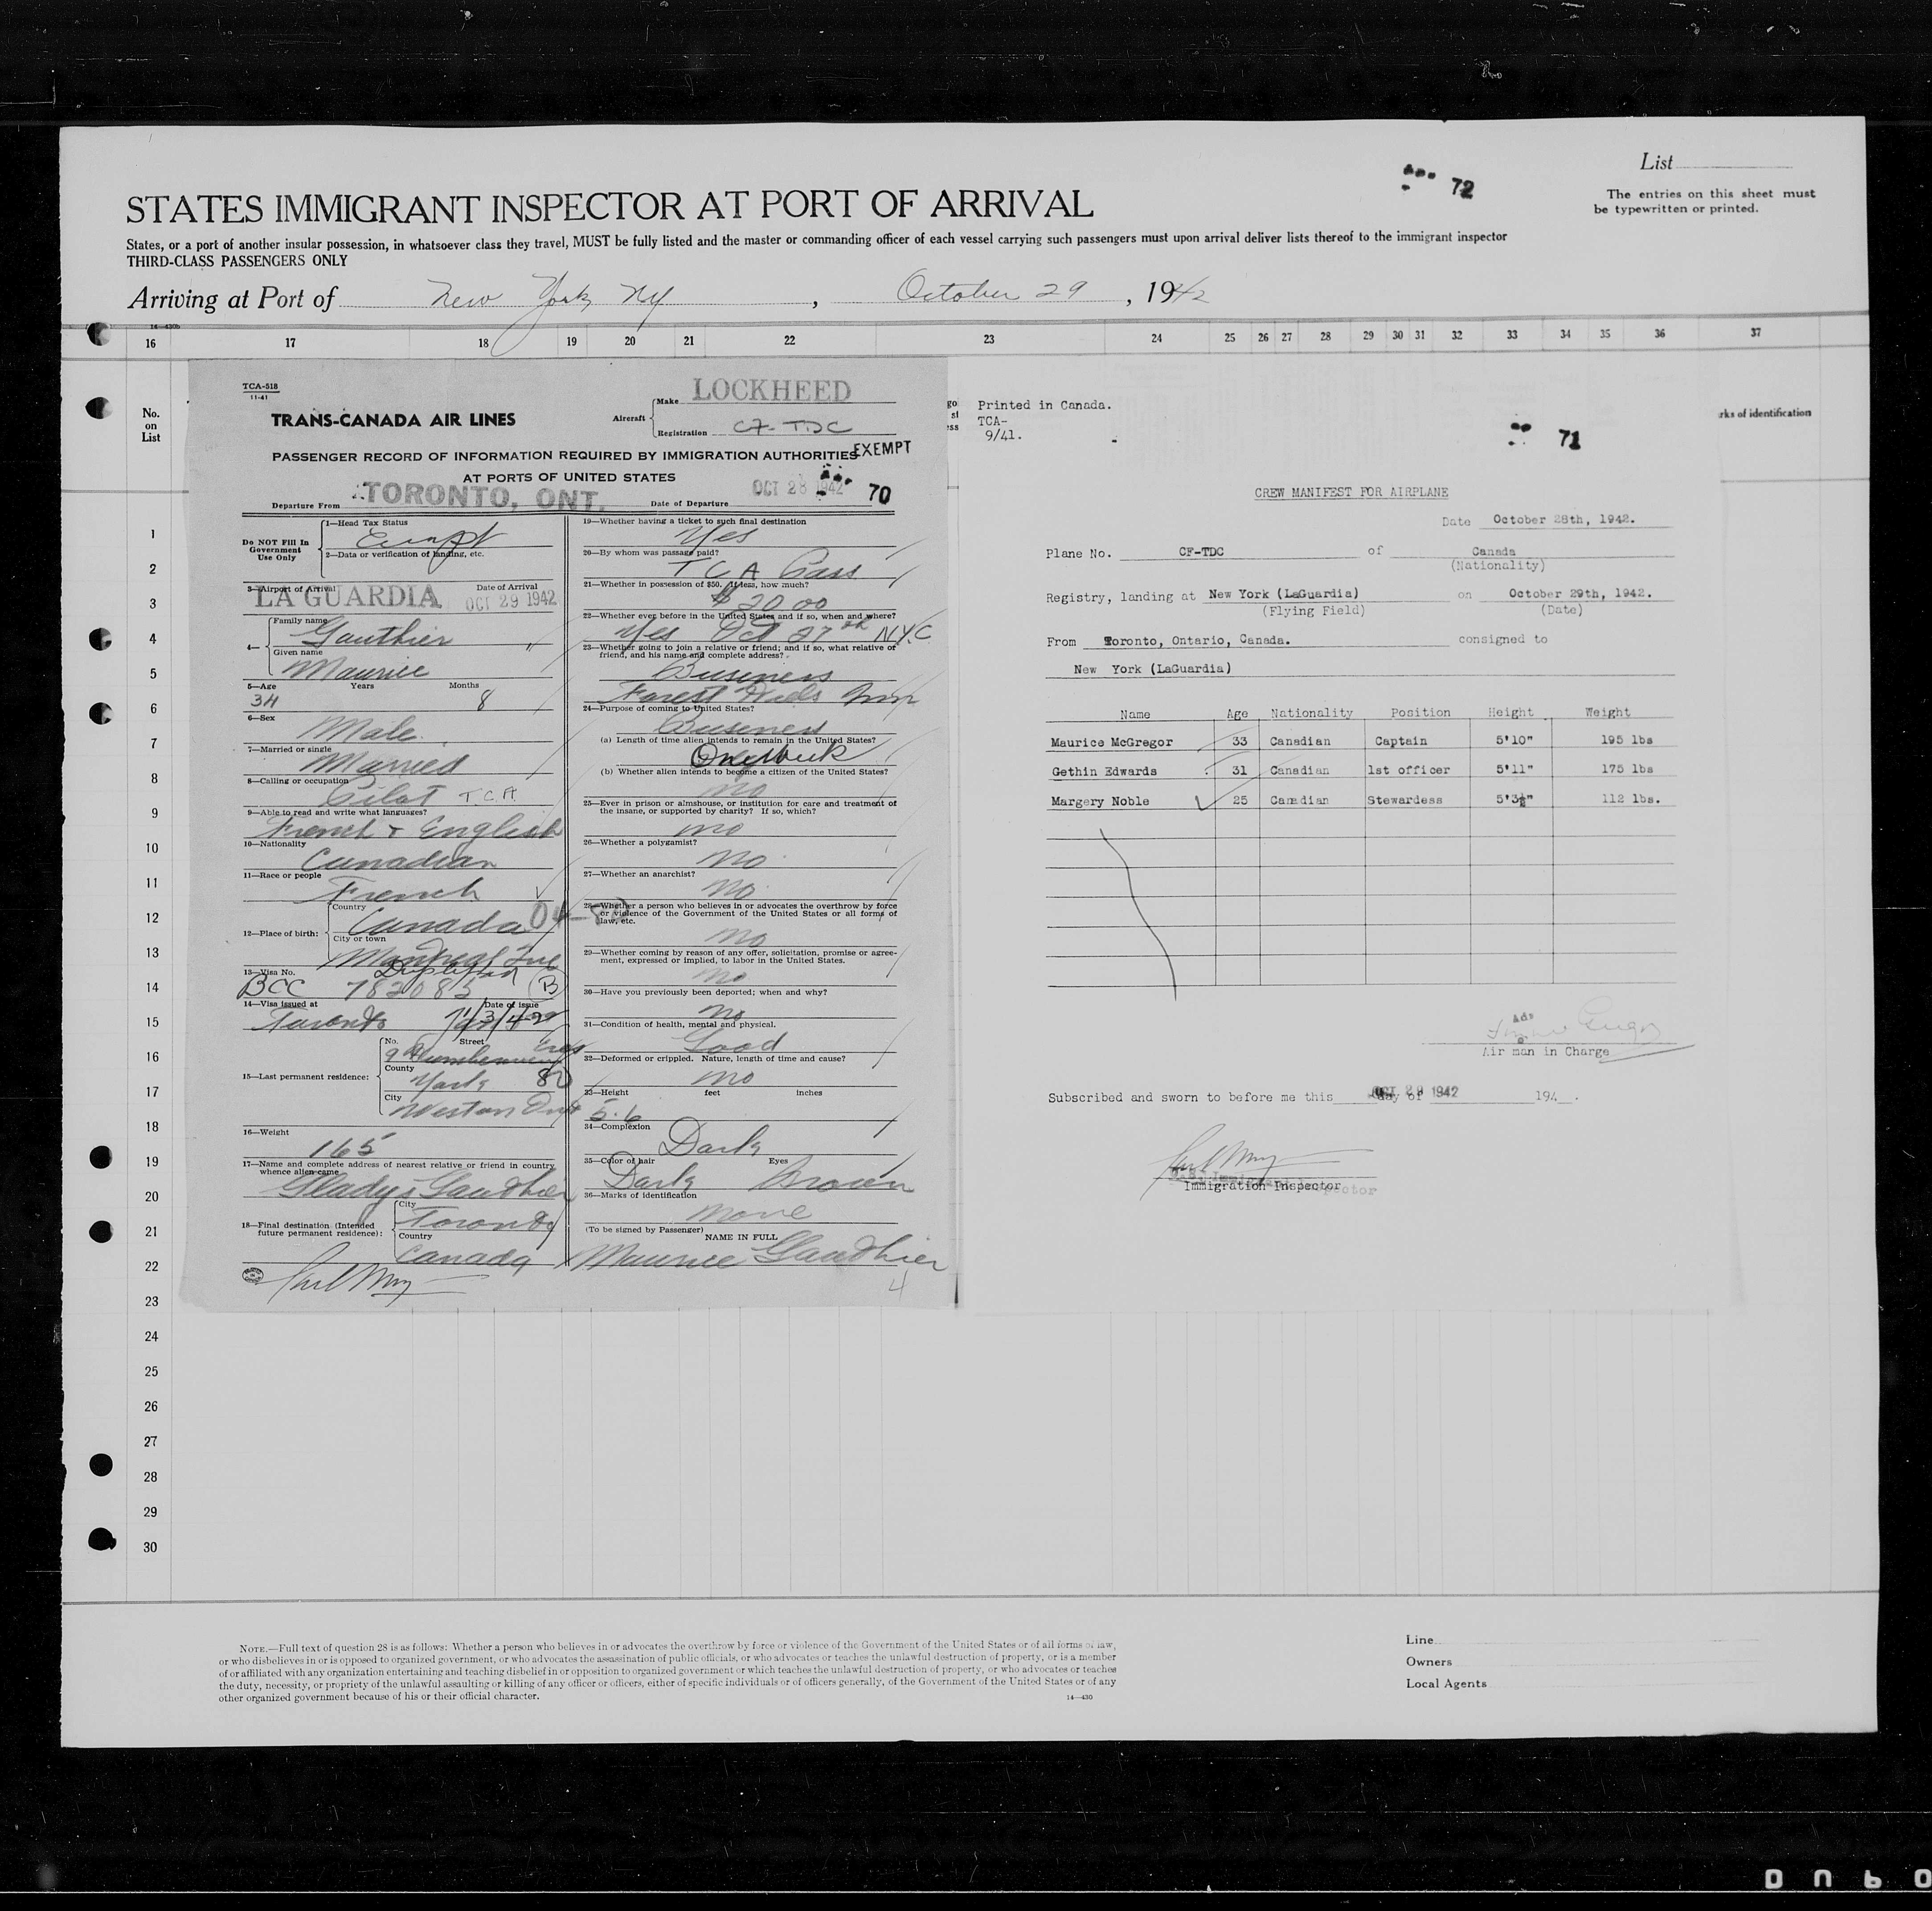 List
72
The entries on this sheet must
be typewritten or printed.
STATES IMMIGRANT INSPECTOR AT PORT OF ARRIVAL
States, or a port of another insular possession, in whatsoever class they travel, MUST be fully listed and the master or commanding officer of each vessel carrying such passengers must upon arrival deliver lists thereof to the immigrant inspector
THIRD-CLASS PASSENGERS ONLY
Arriving at Port of New York NY, October 29, 1942
16 17 18 19 20 21 22 23 24 25 26 27 28 29 30 31 32 33 34 35 36 37
No.
on
List
rks of identification
1
2
3
4
5
6
7
8
9
10
11
12
13
14
15
16
17
18
19
20
21
22
23
24
25
26
27
28
29
30
TCA-518
11-41
TRANS-CANADA AIR LINES
Aircraft
Make LOCKHEED
Registration CF-TDC
PASSENGER RECORD OF INFORMATION REQUIRED BY IMMIGRATION AUTHORITIES
EXEMPT
AT PORTS OF UNITED STATES
Departure From TORONTO, ONT. Date of Departure OCT 28 1942 70
Do NOT Fill In
Government
Use Only
1—Head Tax Status
Exempt
2—Data or verification of landing, etc.
3—Airport of Arrival Date of Arrival
LA GUARDIA OCT 29 1942
4— Family name
Gauthier
Given name
Maurice
5—Age Years Months
34 8
6—Sex
Male
7—Married or single
Married
8—Calling or occupation
Pilot T.C.A.
9—Able to read and write what languages?
French & English
10—Nationality
Canadian
11—Race or people
French
12—Place of birth: Country
Canada
City or town
Montreal Que
13—Visa No.
BCC 782085 B
14—Visa issued at Date of issue
Toronto
15—Last permanent residence: No. Street
9
County
York 80
City
Weston Ont
16—Weight
165
17—Name and complete address of nearest relative or friend in country
whence alien came
Gladys Gauthier
18—Final destination (Intended
future permanent residence): City
Toronto
Country
Canada
19—Whether having a ticket to such final destination
Yes
20—By whom was passage paid?
TCA Pass
21—Whether in possession of $50. If less, how much?
$20.00
22—Whether ever before in the United States and if so, when and where?
Yes Oct 27th N.Y.C.
23—Whether going to join a relative or friend; and if so, what relative or
friend, and his name and complete address?
Business
Forest Hills
24—Purpose of coming to United States?
Business
(a) Length of time alien intends to remain in the United States?
One week
(b) Whether alien intends to become a citizen of the United States?
no
25—Ever in prison or almshouse, or institution for care and treatment of
the insane, or supported by charity? If so, which?
no
26—Whether a polygamist?
no
27—Whether an anarchist?
no
28—Whether a person who believes in or advocates the overthrow by force
or violence of the Government of the United States or all forms of
law, etc.
no
29—Whether coming by reason of any offer, solicitation, promise or agree-
ment, expressed or implied, to labor in the United States.
no
30—Have you previously been deported; when and why?
no
31—Condition of health, mental and physical.
Good
32—Deformed or crippled. Nature, length of time and cause?
no
33—Height feet inches
5.6
34—Complexion
Dark
35—Color of hair Eyes
Dark Brown
36—Marks of identification
none
(To be signed by Passenger) NAME IN FULL
Maurice Gauthier
4
Printed in Canada.
TCA-
9/41.
71
CREW MANIFEST FOR AIRPLANE
Date October 28th, 1942.
Plane No. CF-TDC of Canada
(Nationality)
Registry, landing at New York (LaGuardia) on October 29th, 1942.
(Flying Field) (Date)
From Toronto, Ontario, Canada. consigned to
New York (LaGuardia)
Name Age Nationality Position Height Weight
Maurice McGregor 33 Canadian Captain 5'10" 195 lbs
Gethin Edwards 31 Canadian 1st officer 5'11" 175 lbs
Margery Noble 25 Canadian Stewardess 5'3½" 112 lbs.
Air man in Charge
Subscribed and sworn to before me this OCT 29 1942 day of 194 .
Immigration Inspector
NOTE.—Full text of question 28 is as follows: Whether a person who believes in or advocates the overthrow by force or violence of the Government of the United States or of all forms of law,
or who disbelieves in or is opposed to organized government, or who advocates the assassination of public officials, or who advocates or teaches the unlawful destruction of property, or is a member
of or affiliated with any organization entertaining and teaching disbelief in or opposition to organized government or which teaches the unlawful destruction of property, or who advocates or teaches
the duty, necessity, or propriety of the unlawful assaulting or killing of any officer or officers, either of specific individuals or of officers generally, of the Government of the United States or of any
other organized government because of his or their official character.
14—430
Line
Owners
Local Agents